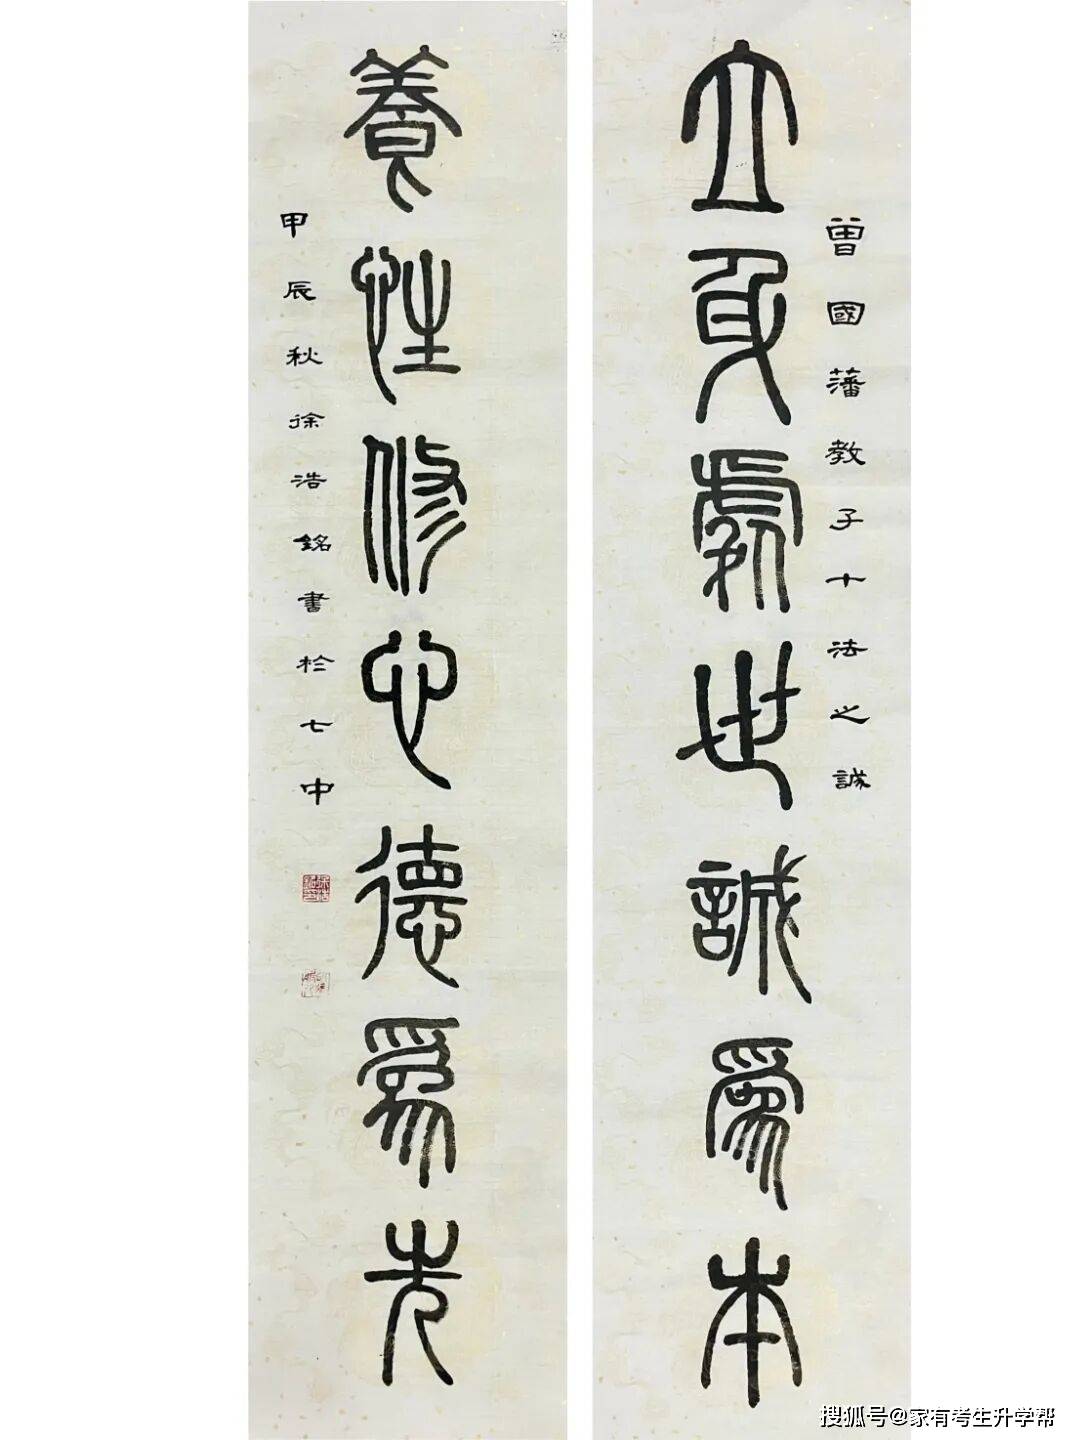 曾國藩教子十法之誠
立身處世誠爲本
養性修心德爲先
甲辰秋徐浩銘書於七中
搜狐号@家有考生升学帮